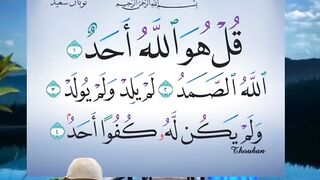 بسم الله الرحمن الرحيم
قُلْ هُوَ ٱللَّهُ أَحَدٌ ١
ٱللَّهُ ٱلصَّمَدُ ٢ لَمْ يَلِدْ وَلَمْ يُولَدْ ٣
وَلَمْ يَكُن لَّهُۥ كُفُوًا أَحَدٌۢ ٤
Thouban